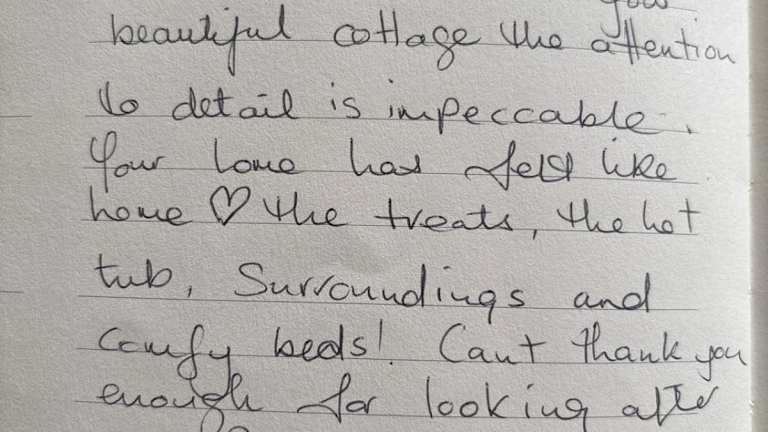 beautiful cottage the attention
to detail is impeccable.
Your home has felt like
home ♡ the treats, the hot
tub, Surroundings and
Comfy beds! Cant thank you
enough for looking after